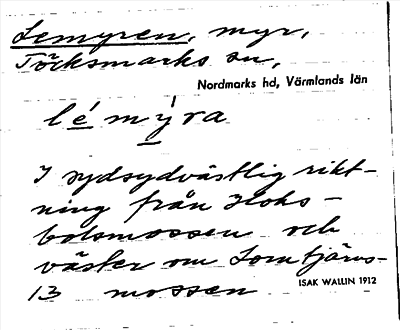 Lemyren, myr,
Töcksmarks sn,
Nordmarks hd, Värmlands län
lé mýra
I sydsydvästlig rikt-
ning från Hoks-
bolsmossen och
väster om Lomtjärns-
13 mossen
ISAK WALLIN 1912